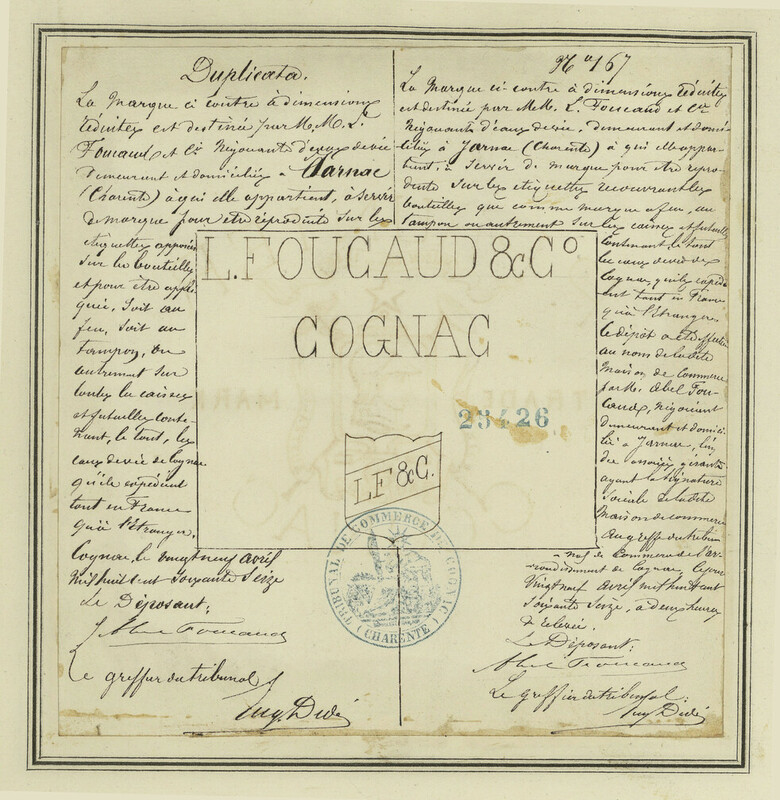 Duplicata.
La marque ci contre à dimensions
réduites est destinée par M.M. L.
Foucaud et Cie Négociants d'eaux de vie
demeurant et domiciliés à Jarnac
(Charente) à qui elle appartient, à servir
de marque pour être reproduite sur les
étiquettes apposées
sur les bouteilles
et pour être appli-
quée, soit au
feu, soit au
tampon, ou
autrement sur
toutes les caisses
et futailles conte-
nant, le tout, les
eaux de vie de Cognac
qu'ils expédient
tant en France
qu'à l'étranger.
Cognac, le vingt neuf avril
mil huit cent soixante seize
Le Déposant:
Abel Foucaud
Le greffier du tribunal
Eug. Didé
No 167
La marque ci contre à dimensions réduites
est destinée par M.M. L. Foucaud et Cie
Négociants d'eaux de vie, demeurant et domi-
ciliés à Jarnac (Charente) à qui elle appar-
tient, à servir de marque pour être repro-
duite sur les étiquettes recouvrant les
bouteilles que comme marque à feu, au
tampon ou autrement sur les caisses et futailles
contenant le tout
les eaux de vie de
Cognac qu'ils expédi-
ent tant en France
qu'à l'étranger.
Le dépôt a été effectué
au nom de la dite
maison de commerce
par M. Abel Fou-
caud, négociant
demeurant et domici-
lié à Jarnac, l'un
des associés gérants
ayant la signature
sociale de la dite
maison de commerce
au greffe du tribu-
nal de Commerce de l'ar-
rondissement de Cognac, le jour
vingt neuf avril mil huit cent
soixante seize, à deux heures
de relevée.
Le Déposant:
Abel Foucaud
Le greffier du tribunal:
Eug. Didé
L. FOUCAUD & Co
COGNAC
TRADE MARK
23426
LF & C.
TRIBUNAL DE COMMERCE DE COGNAC
(CHARENTE)